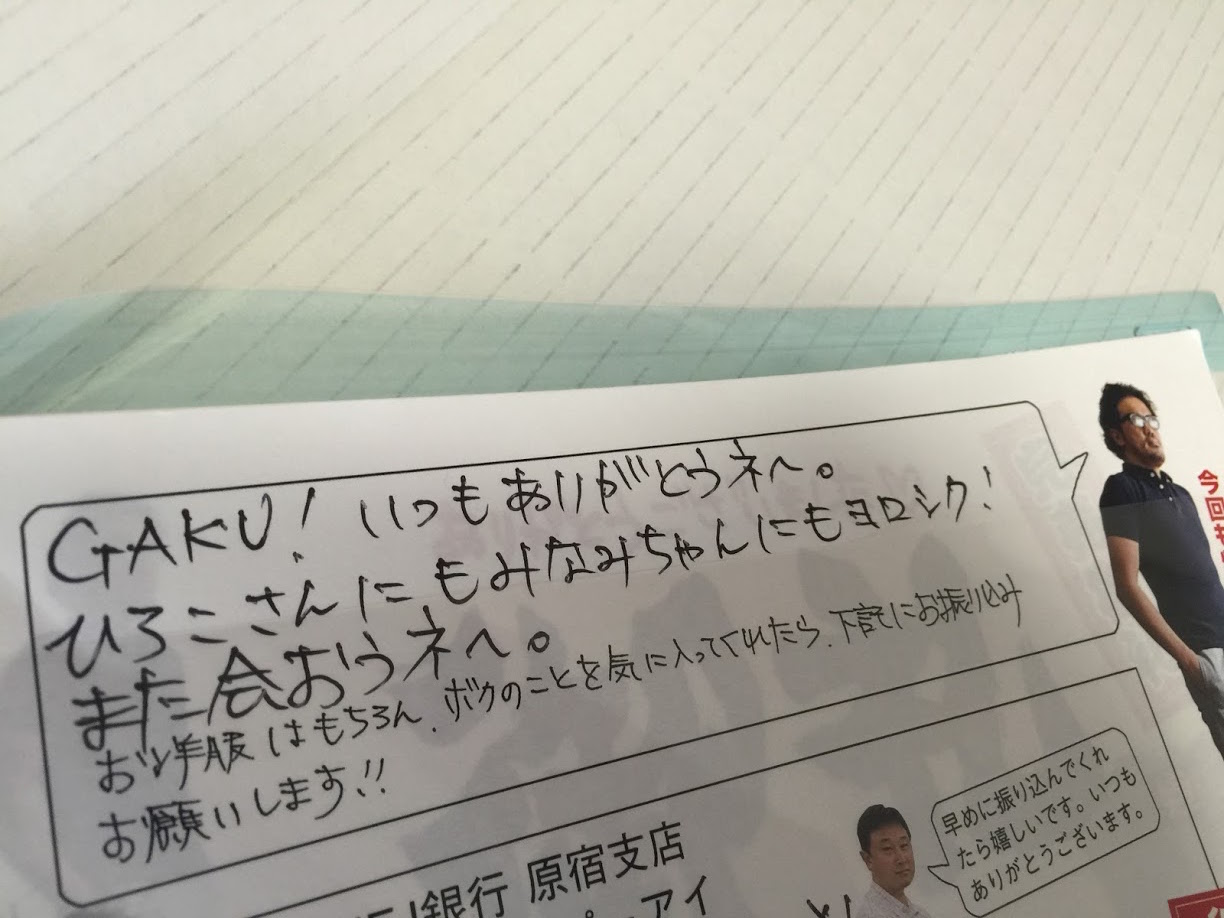 GAKU! いつもありがとうネへ。
ひろこさんにもみなみちゃんにもヨロシク!
また会おうネへ。
お洋服はもちろん、ボクのことを気に入ってくれたら、下記にお振り込み
お願いします!!
今回
早めに振り込んでくれ
たら嬉しいです。いつも
ありがとうございます。
銀行 原宿支店
アイ